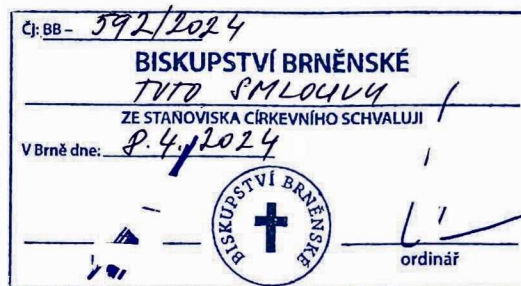 Čj: BB – 592/2024
BISKUPSTVÍ BRNĚNSKÉ
TUTO SMLOUVU
ZE STANOVISKA CÍRKEVNÍHO SCHVALUJI
V Brně dne: 8.4.2024
BISKUPSTVÍ BRNĚNSKÉ
ordinář